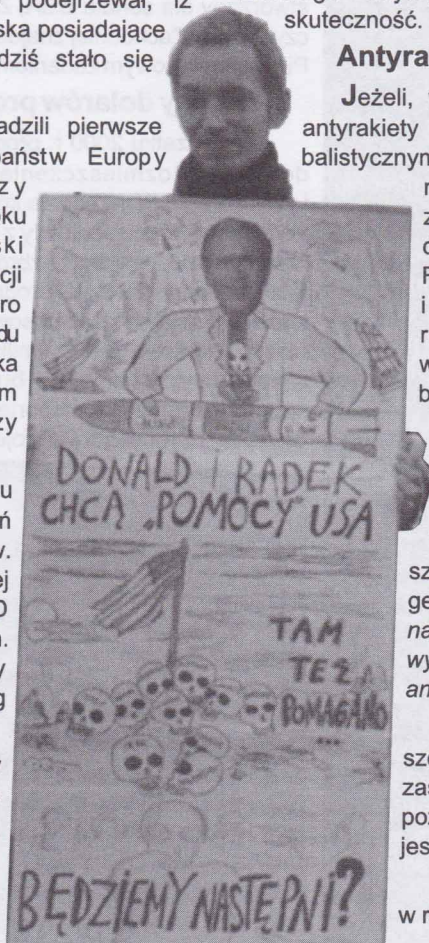 podejrzewał, iż
ska posiadające
dziś stało się
adzili pierwsze
państw Europy
zy
oku
ski
cji
ro
du
ka
m
zy
u
ń
y.
ej
0
n.
y
g
skuteczność.
Antyra
Jeżeli,
antyrakiety
balistycznym
b
sz
ge
na
wy
an
sze
zas
poz
jes
w r
DONALD i RADEK
CHCĄ „POMOCY” USA
TAM
TEŻ
POMAGANO
...
BĘDZIEMY NASTĘPNI?